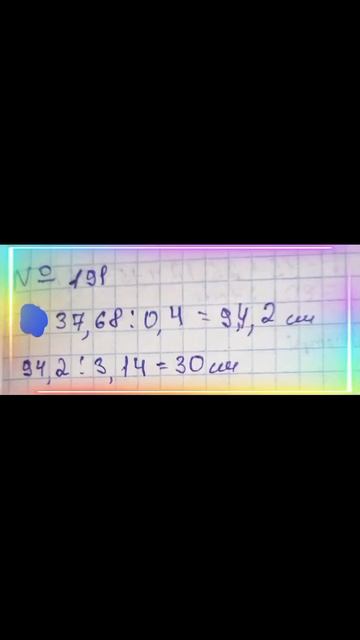 № 191
37,68:0,4=94,2 см
94,2:3,14=30 см